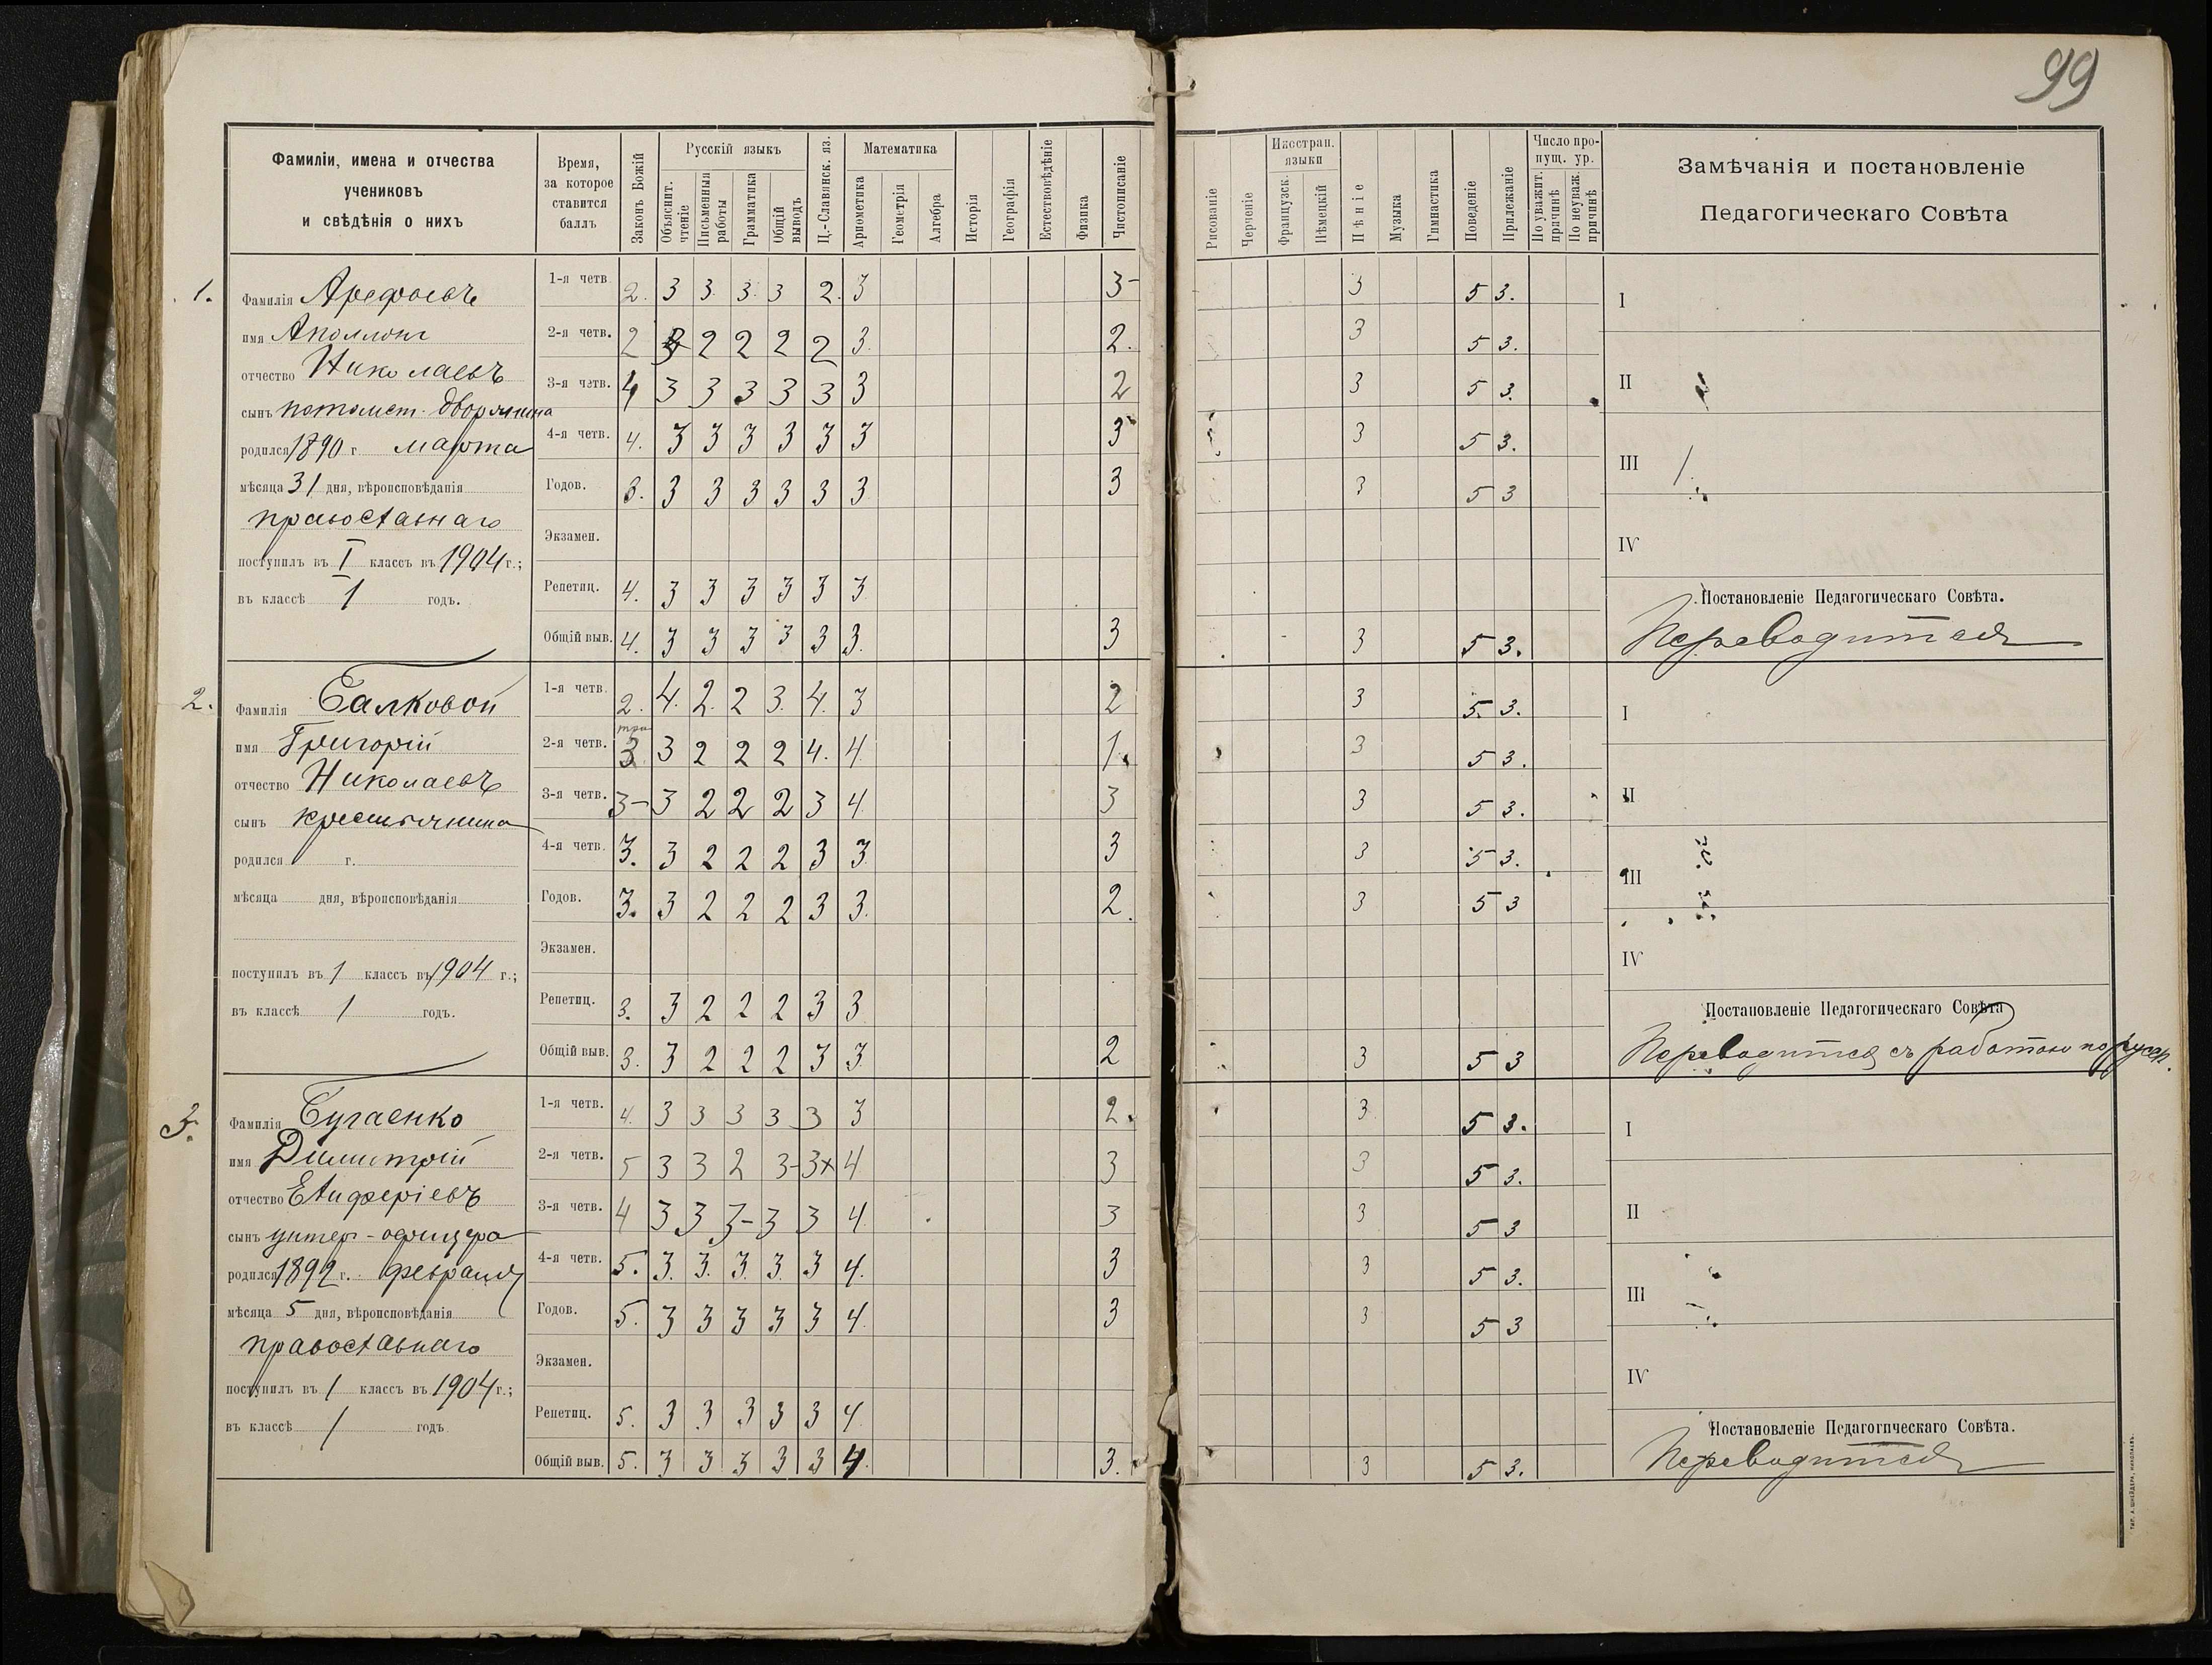 99
Фамиліи, имена и отчества
учениковъ
и свѣдѣнія о нихъ
Время,
за которое
ставится
баллъ
Законъ Божій
Русскій языкъ
Объяснит. чтеніе
Письменныя работы
Грамматика
Общій выводъ
Ц.-Славянск. яз.
Математика
Арифметика
Геометрія
Алгебра
Исторія
Географія
Естествовѣдѣніе
Физика
Чистописаніе
Рисованіе
Черченіе
Иностран. языки
Французск.
Нѣмецкій
Пѣніе
Музыка
Гимнастика
Поведеніе
Прилежаніе
Число пропущ. ур.
По уважит. причинѣ
По неуваж. причинѣ
Замѣчанія и постановленіе
Педагогическаго Совѣта
1.
Фамилія Арефьевъ
имя Аполлонъ
отчество Николаевъ
сынъ потомст. дворянина
родился 1890 г. марта
мѣсяца 31 дня, вѣроисповѣданія
православнаго
поступилъ въ I классъ въ 1904 г.;
въ классѣ 1 годъ.
1-я четв. 2. 3 3. 3. 3 2. 3 3- 3 5 3. I
2-я четв. 2 3 2 2 2 2 3. 2. 3 5 3.
3-я четв. 4 3 3 3 3 3 3 2 3 5 3. II
4-я четв. 4. 3 3 3 3 3 3 3 3 5 3. III
Годов. 3. 3 3 3 3 3 3 3 3 5 3
Экзамен. IV
Репетиц. 4. 3 3 3 3 3 3
Постановленіе Педагогическаго Совѣта.
Общій выв. 4. 3 3 3 3 3 3. 3 3 5 3. Переводится
2.
Фамилія Балковой
имя Григорій
отчество Николаевъ
сынъ крестьянина
родился г.
мѣсяца дня, вѣроисповѣданія
поступилъ въ 1 классъ въ 1904 г.;
въ классѣ 1 годъ.
1-я четв. 2. 4. 2. 2 3. 4. 3 2 3 5. 3. I
три
2-я четв. 3 3 2 2 2 4. 4. 1. 3 5 3.
3-я четв. 3- 3 2 2 2 3 4. 3 3 5 3. II
4-я четв. 3. 3 2 2 2 3 3 3 3 5 3. III
Годов. 3. 3 2 2 2 3 3. 2. 3 5 3
Экзамен. IV
Репетиц. 3. 3 2 2 2 3 3
Постановленіе Педагогическаго Совѣта
Общій выв. 3. 3 2 2 2 3 3 2 3 5 3 Переводится съ работою по русск.
3.
Фамилія Бугаенко
имя Димитрій
отчество
сынъ унтер-офицера
родился 1892 г. февраля
мѣсяца 5 дня, вѣроисповѣданія
православнаго
поступилъ въ 1 классъ въ 1904 г.;
въ классѣ 1 годъ
1-я четв. 4. 3 3 3 3 3 3 2. 3 5 3. I
2-я четв. 5 3 3 2 3- 3+ 4 3 3 5 3.
3-я четв. 4 3 3 3- 3 3 4. 3 3 5 3 II
4-я четв. 5. 3. 3. 3. 3. 3 4. 3 3 5 3.
Годов. 5. 3 3 3 3 3 4. 3 3 5 3 III
Экзамен. IV
Репетиц. 5. 3 3 3 3 3 4.
Постановленіе Педагогическаго Совѣта.
Общій выв. 5. 3 3 3 3 3 4. 3. 3 5 3. Переводится
ТИП. А. ШНЕЙДЕРА, НИКОЛАЕВЪ.